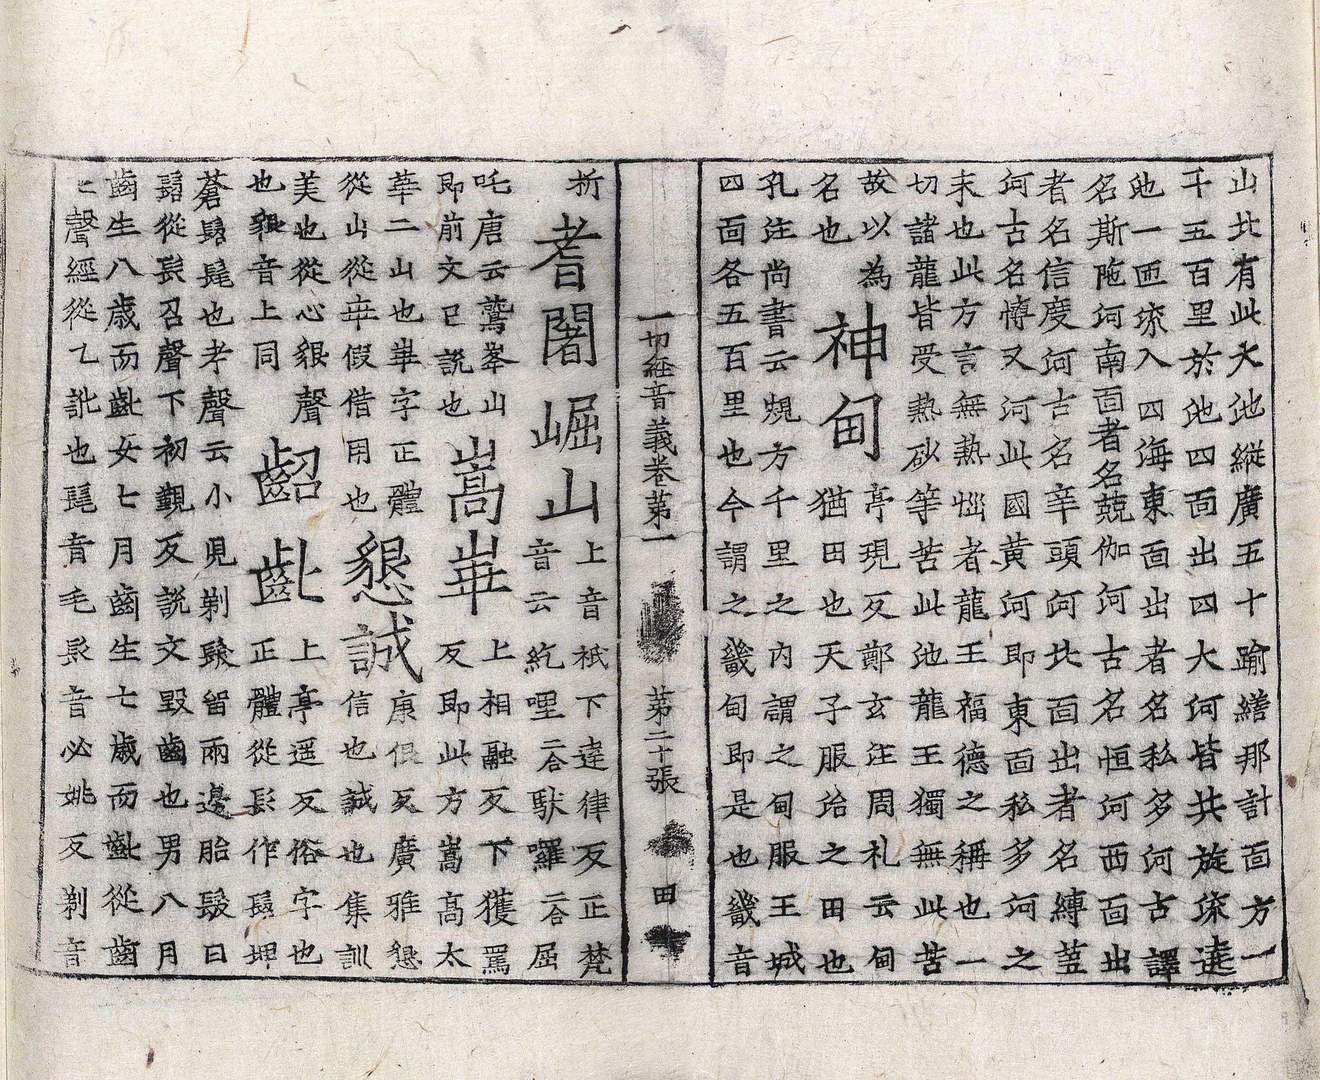 山北有此大池縱廣五十踰繕那計面方一
千五百里於池四面出四大河皆共旋流遶
池一匝流入四海東面出者名私多河古譯
名斯陁河南面者名兢伽河古名恒河西面出
者名信度河古名辛頭河北面出者名縛蒭
河古名愽叉河此國黃河即東面私多河之
末也此方言無熱惱者龍王福德之稱也一
切諸龍皆受熱砂等苦此池龍王獨無此苦
故以為
名也
神甸
亭現反鄭玄注周礼云甸
猶田也天子服治之田也
孔注尚書云規方千里之內謂之甸服王城
四面各五百里也今謂之畿甸即是也畿音
一切經音義卷苐一 苐二十張 田
祈
耆闍崛山
上音祇下達律反正梵
音云紇哩二合馱囉二合屈
吒唐云鷲峯山
即前文已說也
嵩崋
上相融反下獲罵
反即此方嵩高太
華二山也崋字正體
從山從𠦒假借用也
懇誠
康佷反廣雅懇
信也誠也集訓
美也從心貇聲
也貇音上同
齠齔
上亭遥反俗字也
正體從髟作髫埤
蒼髫髦也考聲云小兒剃髮留兩邊胎髮曰
髫從髟召聲下初覲反說文毀齒也男八月
齒生八歲而齔女七月齒生七歲而齔從齒
匕聲經從乙訛也髦音毛髟音必姚反剃音